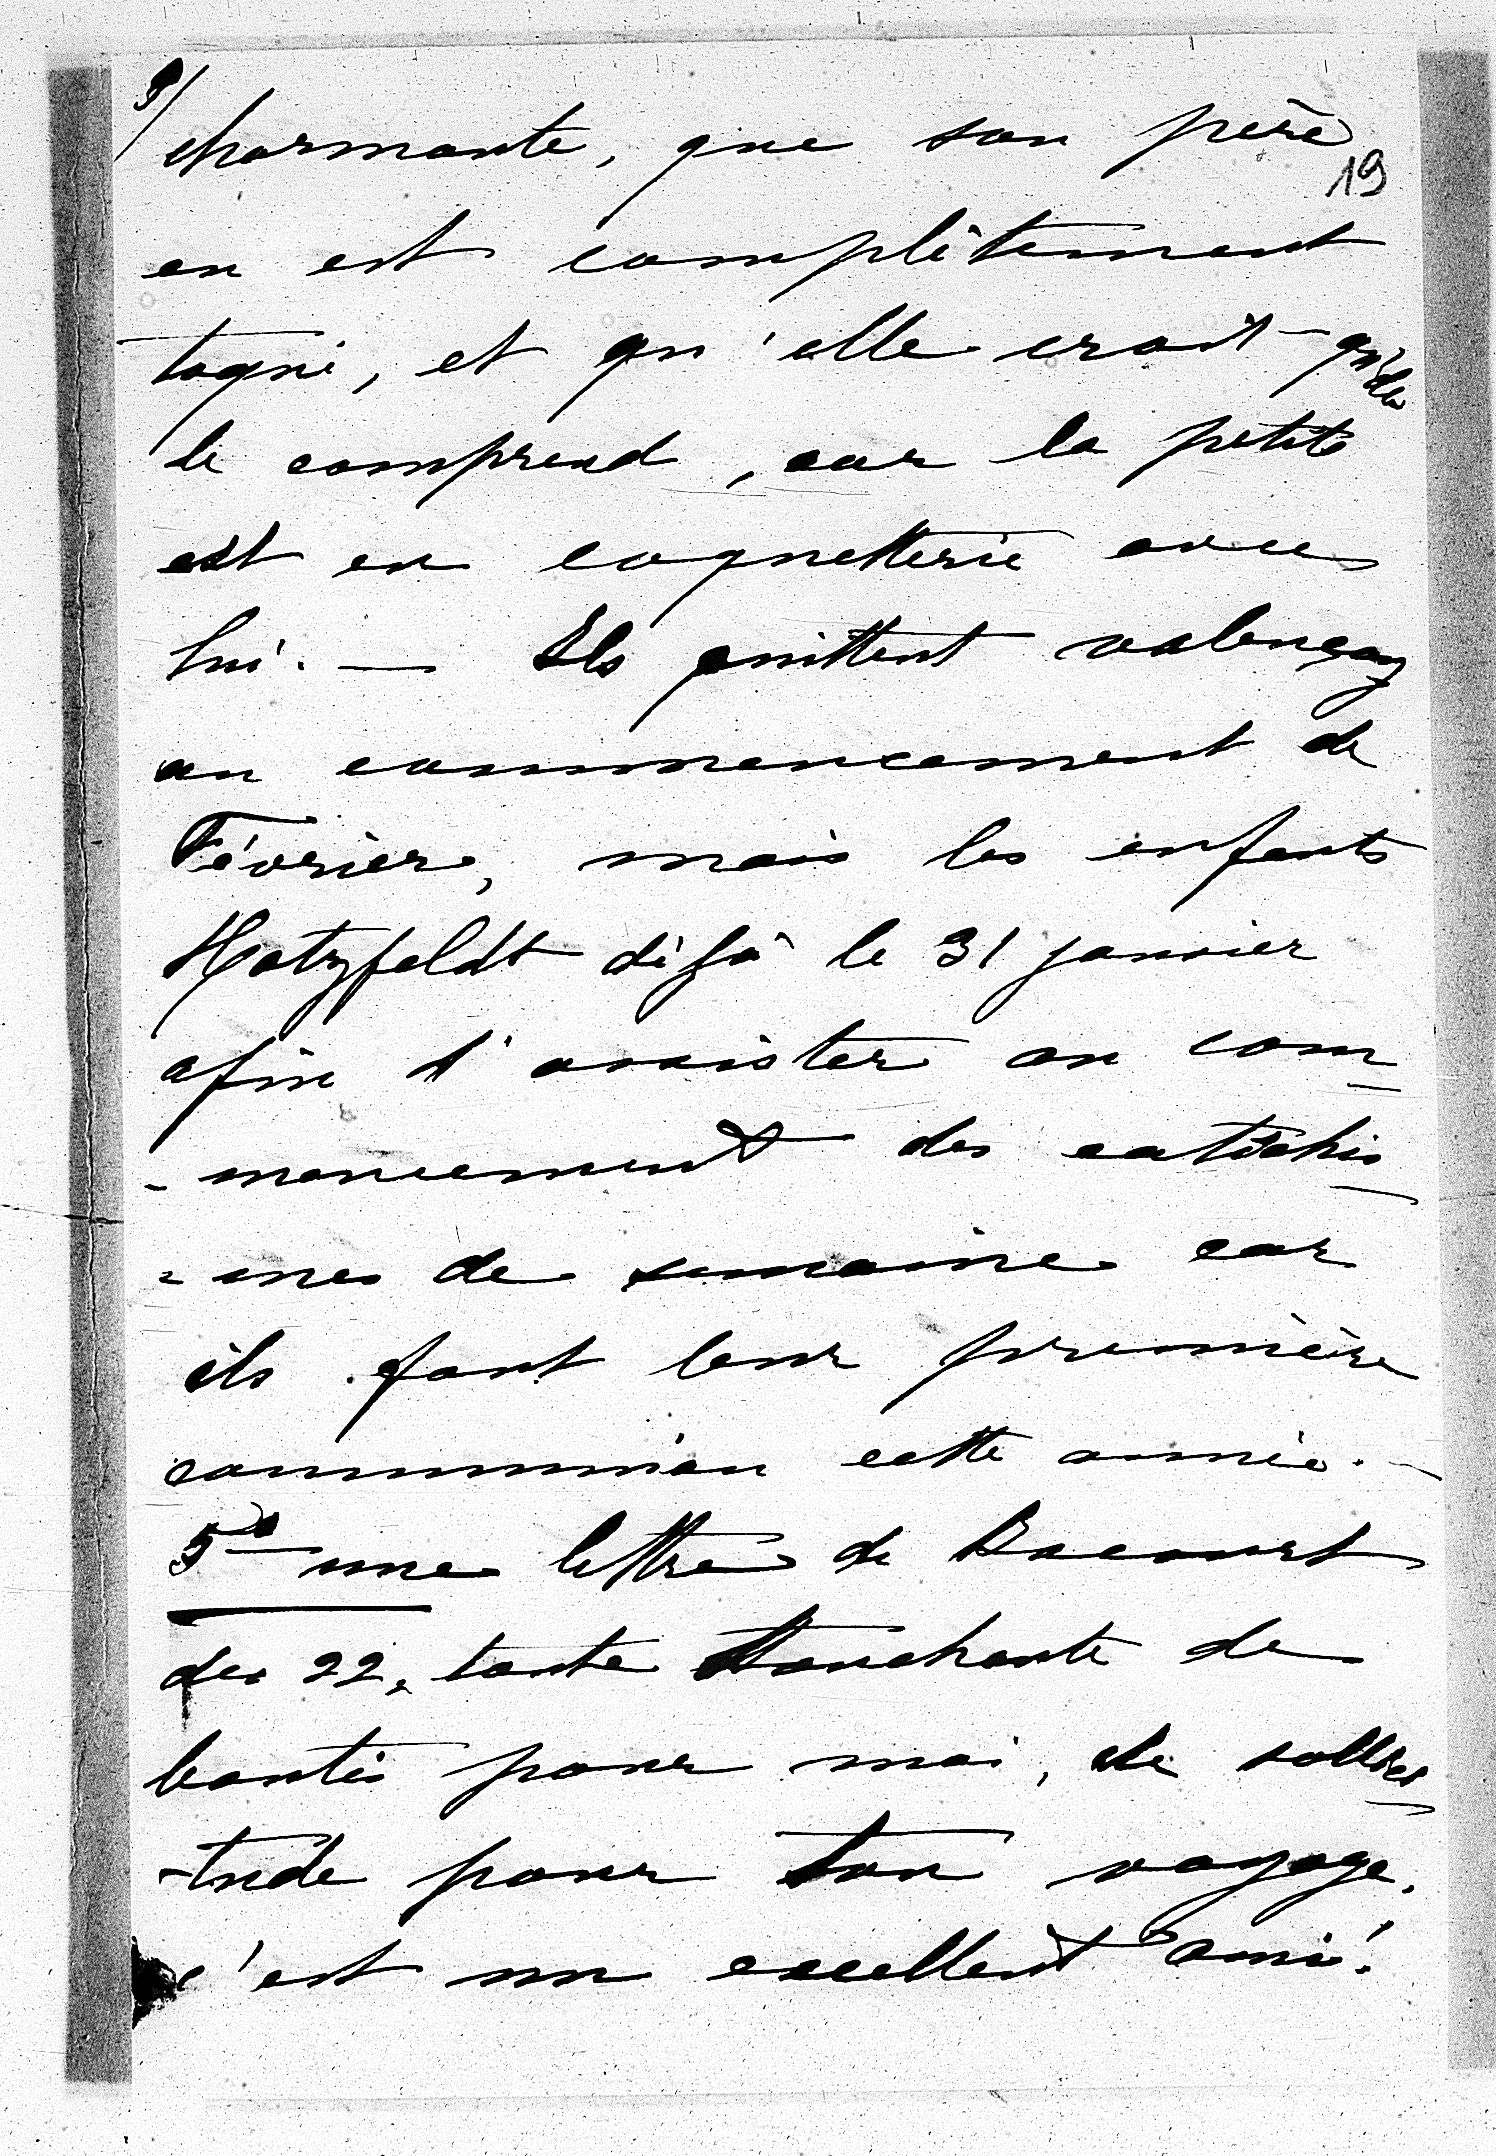 9/
charmante, que son père
19
en est complètement
toqué, et qu'elle croit qu'elle
le comprend, car la petite
est en coquetterie avec
lui. — Ils quittent Valençay
au commencement de
Février, mais les enfants
Hatzfeldt déjà le 31 janvier
afin d'assister au com
-mencement des catéchis
-mes de semaine car
ils font leur première
communion cette année. -
5º une lettre de Bacourt
des 22, toute touchante de
bontés pour moi, de sollici
-tude pour ton voyage.
c'est un excellent ami!